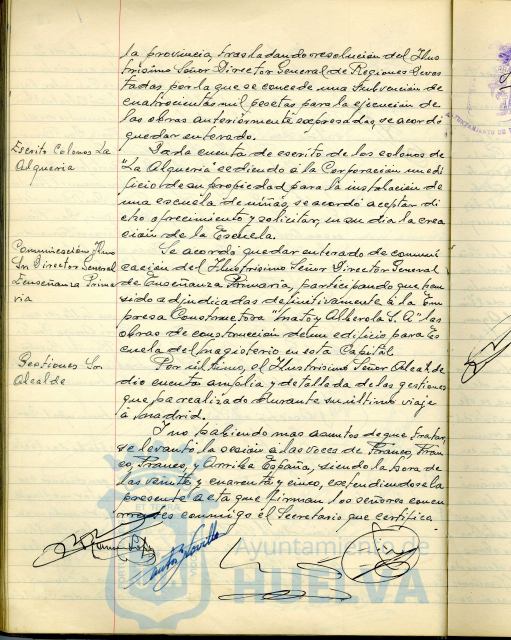 la provincia, trasladando resolución del Ilus
trísimo Señor Director General de Regiones Devas
tadas, por la que se concede una subvención de
cuatrocientas mil pesetas para la ejecución de
las obras anteriormente expresadas, se acordó
quedar enterado.
Escrito Colonos La
Alqueria
Dada cuenta de escrito de los colonos de
"La Alqueria" cediendo a la Corporación un edi
ficio de su propiedad para la instalación de
una escuela de niñas, se acordó aceptar di
cho ofrecimiento y solicitar, en su dia la crea
ción de la Escuela.
Comunicación Ilmo
Sr Director General
Enseñanza Prima
ria
Se acordó quedar enterado de comuni
cación del Ilustrísimo Señor Director General
de Enseñanza Primaria, participando que han
sido adjudicadas definitivamente a la Em
presa Constructora "Mato y Alberola S. A." las
obras de construcción de un edificio para Es
cuela del Magisterio en esta Capital.
Gestiones Sr
Alcalde
Por último, el Ilustrísimo Señor Alcalde
dio cuenta amplia y detallada de las gestiones
que ha realizado durante su último viaje
a Madrid.
Y no habiendo mas asuntos de que tratar,
se levantó la sesión a las voces de Franco, Fran
co, Franco, y Arriba España, siendo la hora de
las veinte y cuarenta y cinco, extendiendose la
presente acta que firman los señores concu
rrentes conmigo el Secretario que certifica.
Ayuntamiento de
HUELVA